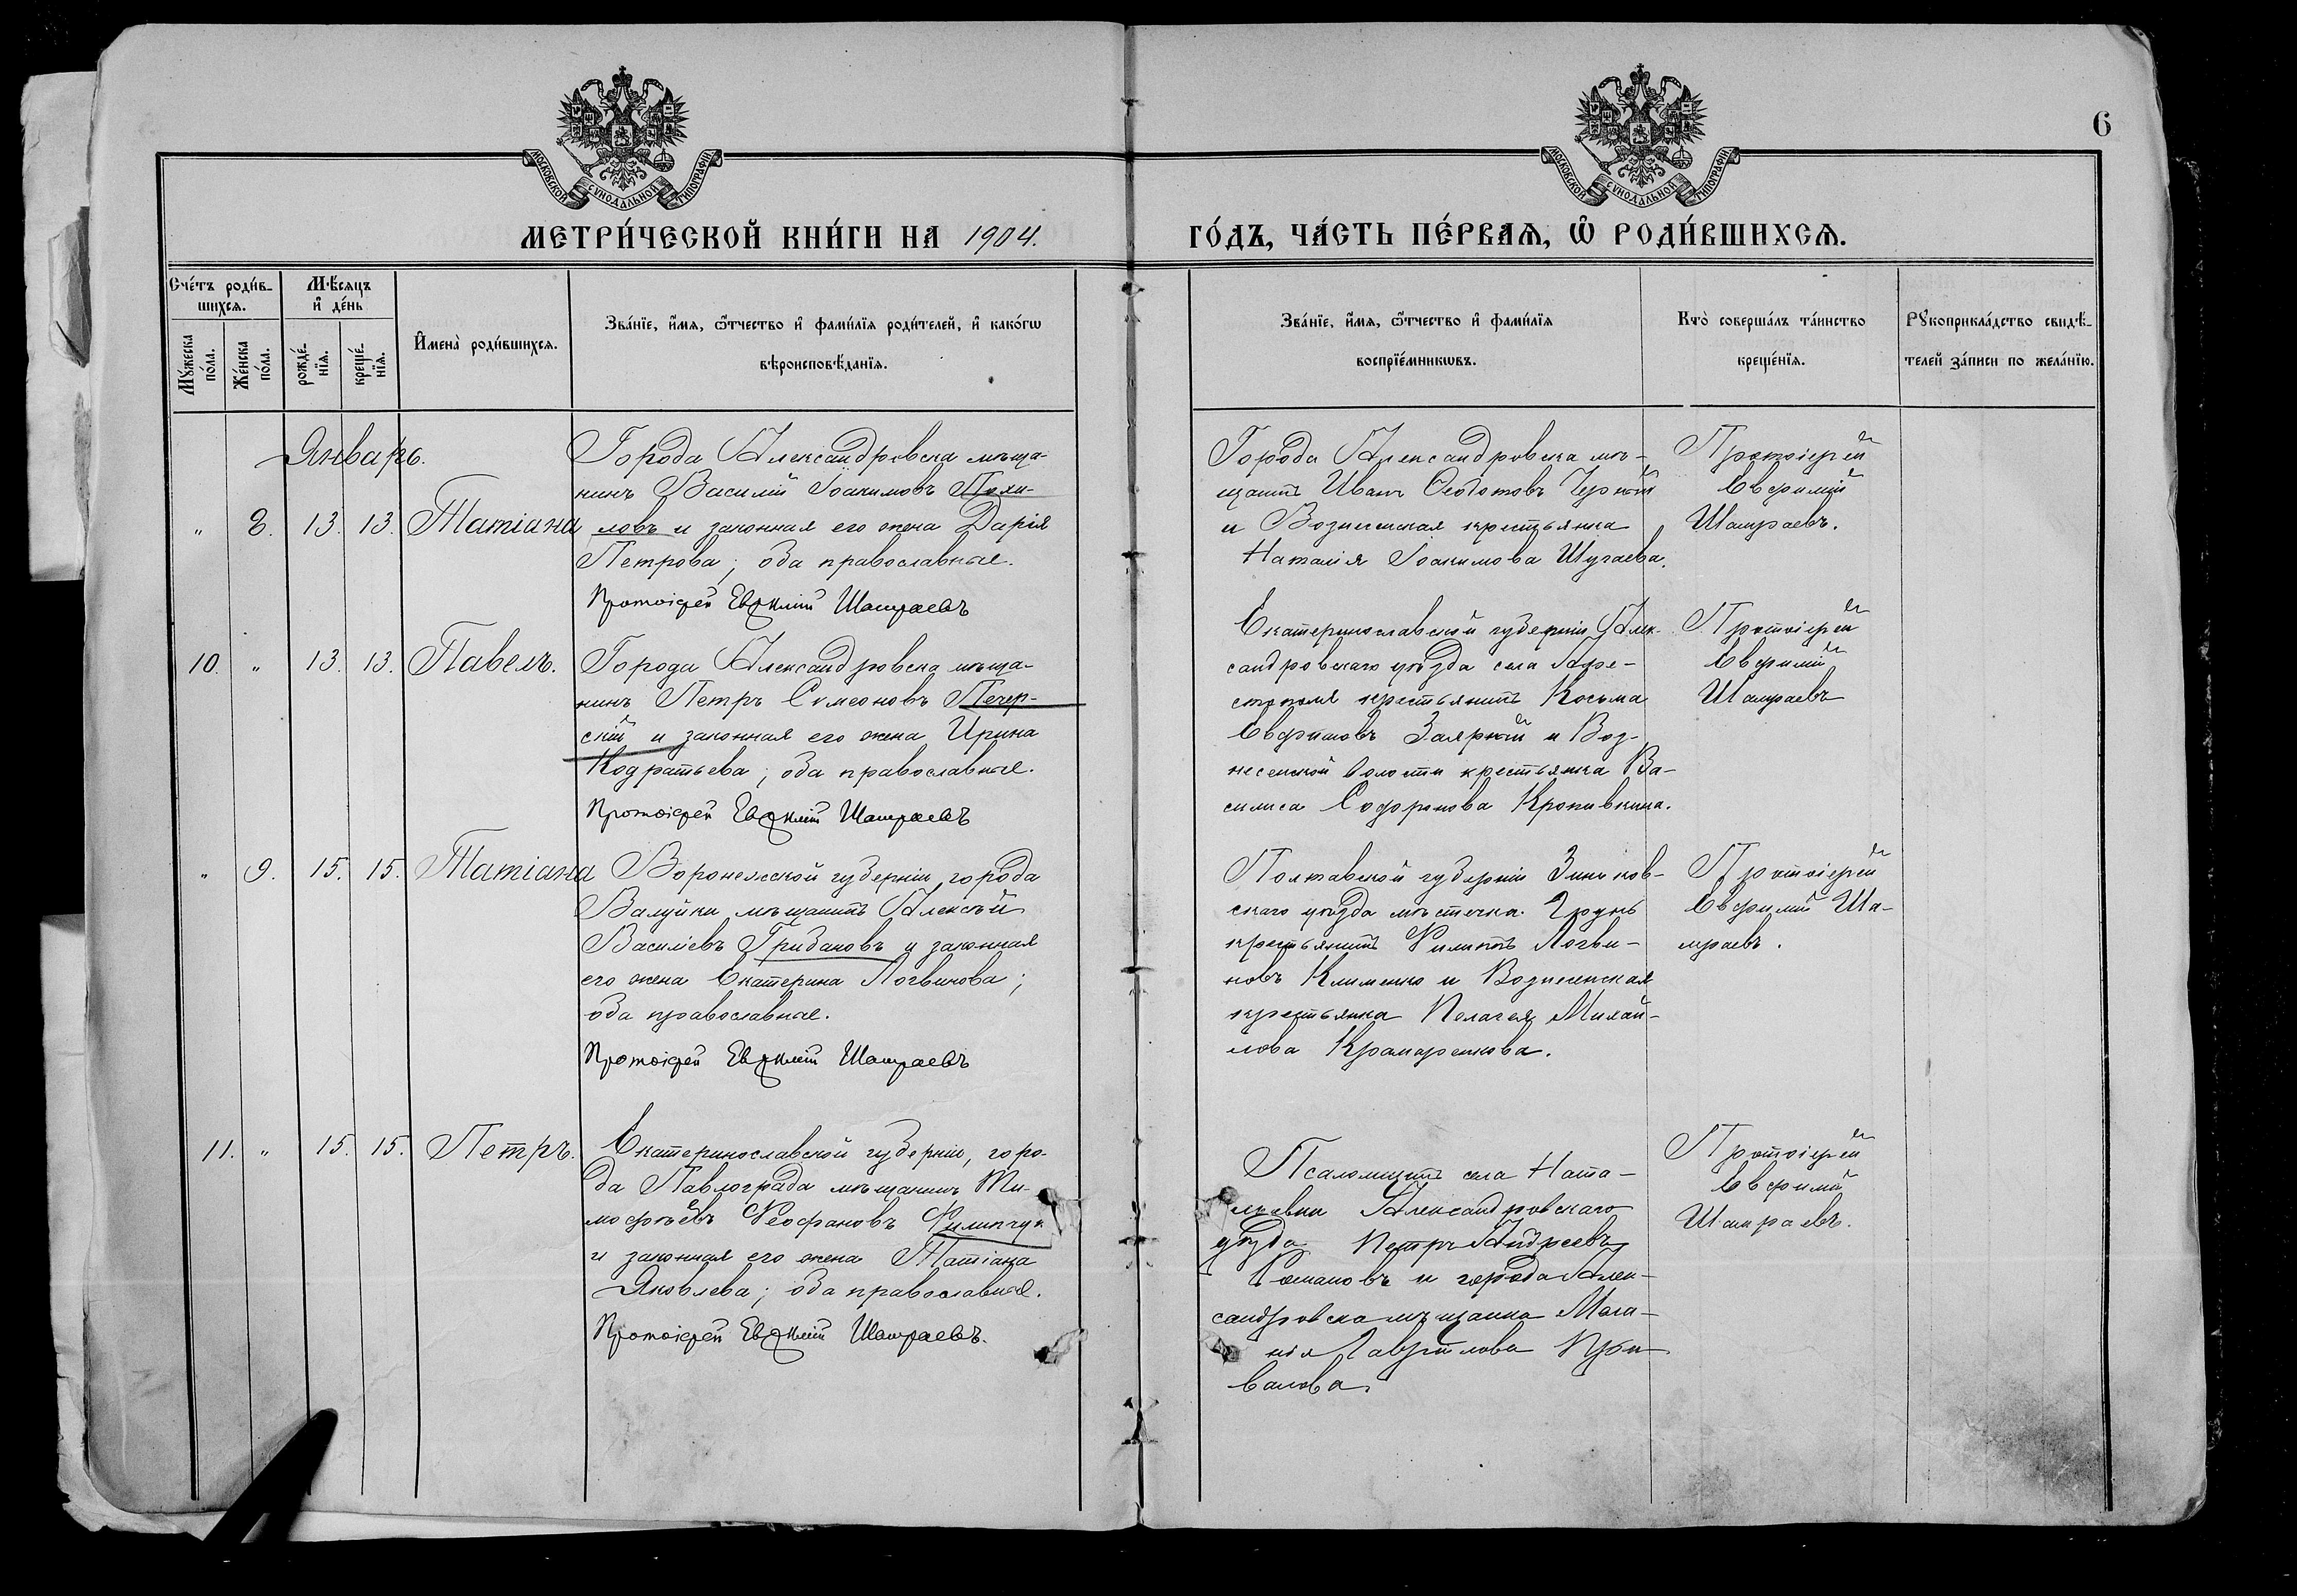 6
МОСКОВСКОЙ СѴНОДАЛЬНОЙ ТИПОГРАФІИ
МОСКОВСКОЙ СѴНОДАЛЬНОЙ ТИПОГРАФІИ
МЕТРИ́ЧЕСКОЙ КНИ́ГИ НА 1904.
ГО́ДЪ, ЧА́СТЬ ПЕ́РВАѦ, Ѡ҆ РОДИ́ВШИХСѦ.
Сче́тъ роди́в-
шихсѧ.
Мꙋ́жеска
по́ла.
Же́нска
по́ла.
Мѣ́сѧцъ
и҆ де́нь
рожде́-
нїѧ.
креще́-
нїѧ.
И҆мена̀ роди́вшихсѧ.
Зва́нїе, и҆́мѧ, ѻ҆́тчество и҆ фами́лїѧ роди́телей, и҆ како́гѡ
вѣроисповѣ́данїѧ.
Зва́нїе, и҆́мѧ, ѻ҆́тчество и҆ фами́лїѧ
воспрїе́мникѡвъ.
Кто̀ соверша́лъ та́инство
креще́нїѧ.
Рꙋкоприкла́дство свидѣ́-
телей за́писи по жела́нїю.
Январь.
" 8. 13. 13. Татіана
Города Александровска мѣща-
нинъ Василій Іоакимовъ Похи-
ловъ и законная его жена Дарія
Петрова; оба православные.
Протоіерей Евѳимій Шамраевъ
Города Александровска мѣ-
щанинъ Иванъ Ѳедотовъ Черный
и Вознесенская крестьянка
Наталія Іоакимова Шугаева.
Протоіерей
Евфимій
Шамраевъ.
10. " 13. 13. Павелъ.
Города Александровска мѣща-
нинъ Петръ Симеоновъ Печер-
скій и законная его жена Ирина
Кодратьева; оба православные.
Протоіерей Евѳимій Шамраевъ
Екатеринославской губерніи Алек-
сандровскаго уѣзда села
крестьянинъ Косьма
Евфимовъ Заярный и Воз-
несенской волости крестьянка Ва-
силиса Софронова Кропивкина.
Протоіерей
Евфимій
Шамраевъ
" 9. 15. 15. Татіана
Воронежской губерніи города
Валуйки мѣщанинъ Алексѣй
Василіевъ Грибановъ и законная
его жена Екатерина Логвинова;
оба православные.
Протоіерей Евѳимій Шамраевъ
Полтавской губерніи Зиньков-
скаго уѣзда мѣстечка Грунь
крестьянинъ Филиппъ Логви-
новъ Клименко и Вознесенская
крестьянка Пелагея Михай-
лова Крамаренкова.
Протоіерей
Евфимій Ша-
мраевъ.
11. " 15. 15. Петръ.
Екатеринославской губерніи, горо-
да Павлограда мѣщанинъ Ти-
мофѣевъ Ѳеофановъ Филипчук
и законная его жена Татіана
Яковлева; оба православные.
Протоіерей Евѳимій Шамраевъ.
Псаломщикъ села Ната-
льевки Александровскаго
уѣзда Петръ Андреевъ
Романовъ и города Алек-
сандровска мѣщанка Мела-
нія Гавріилова
валова.
Протоіерей
Евфимій
Шамраевъ.